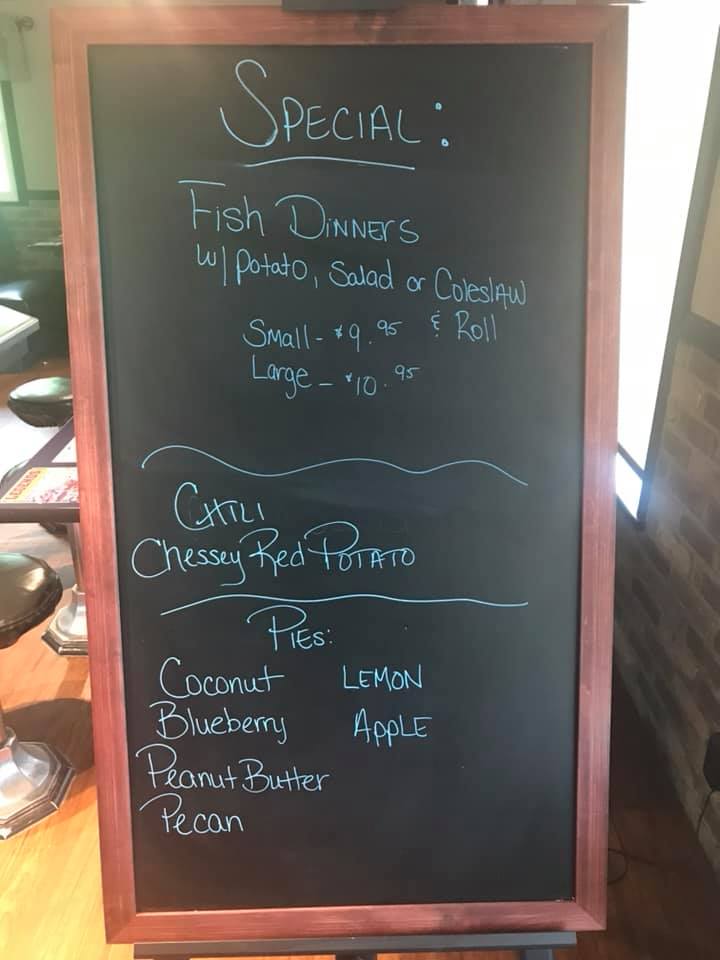 SPECIAL:
Fish DiNNERS
w/ Potato, Salad or ColeslAW
& Roll
SMall - $9.95
Large - $10.95
CHILI
Chessey Red POTATO
PIES:
Coconut LEMON
Blueberry APPLE
Peanut Butter
Pecan